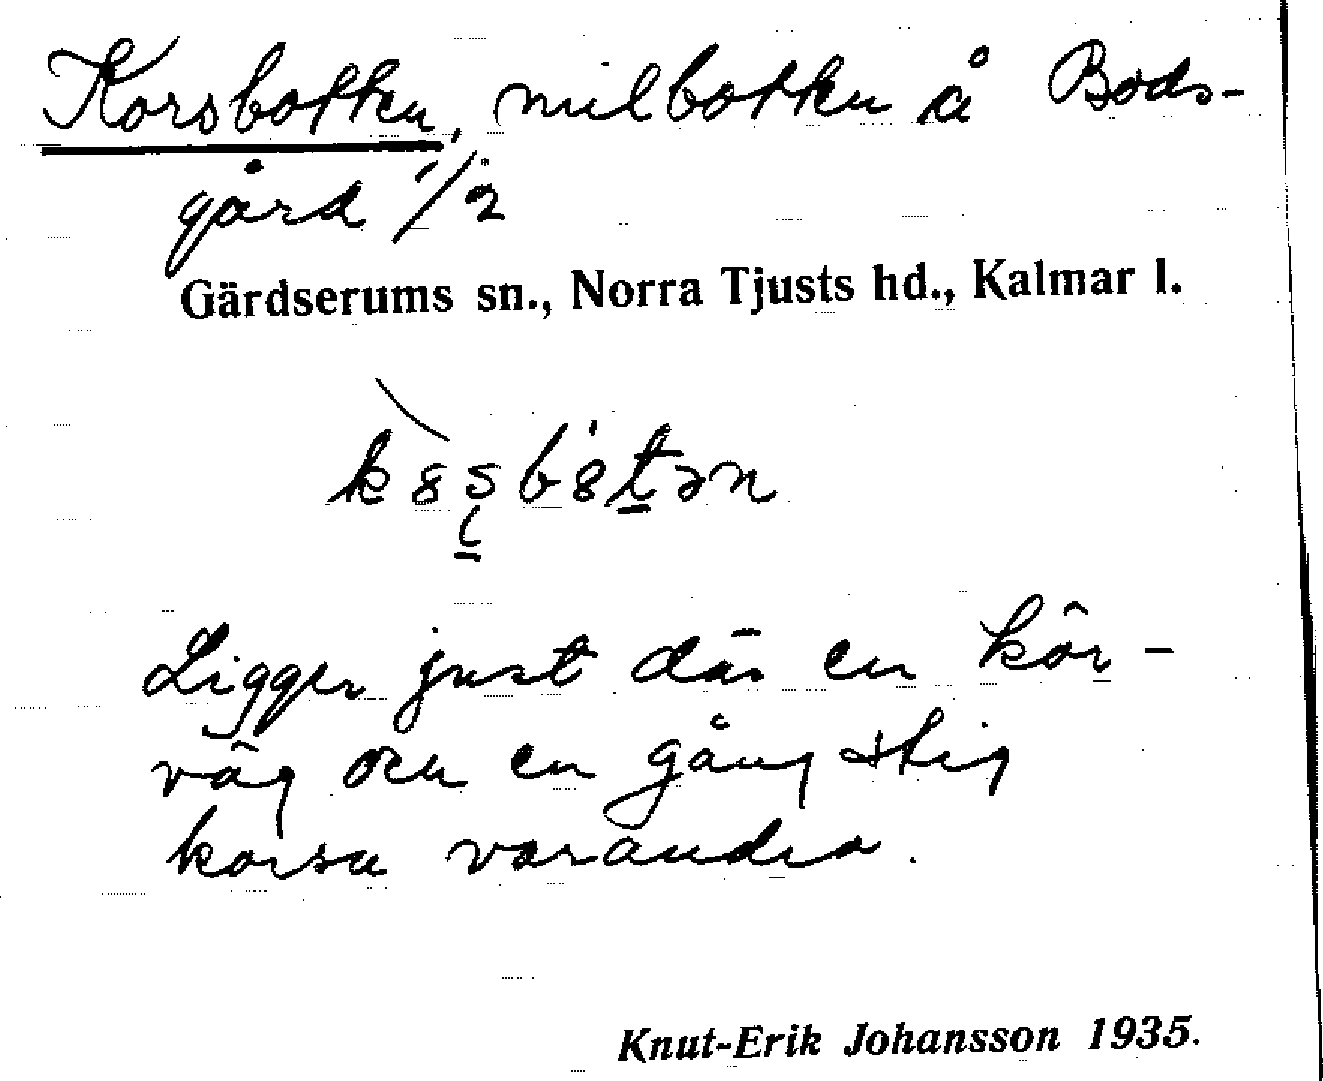 Korsbotten, milbotten å Bods-
gård 1/2
Gärdserums sn., Norra Tjusts hd., Kalmar l.
Ligger just där en kör-
väg och en gångstig
korsa varandra.
Knut-Erik Johansson 1935.